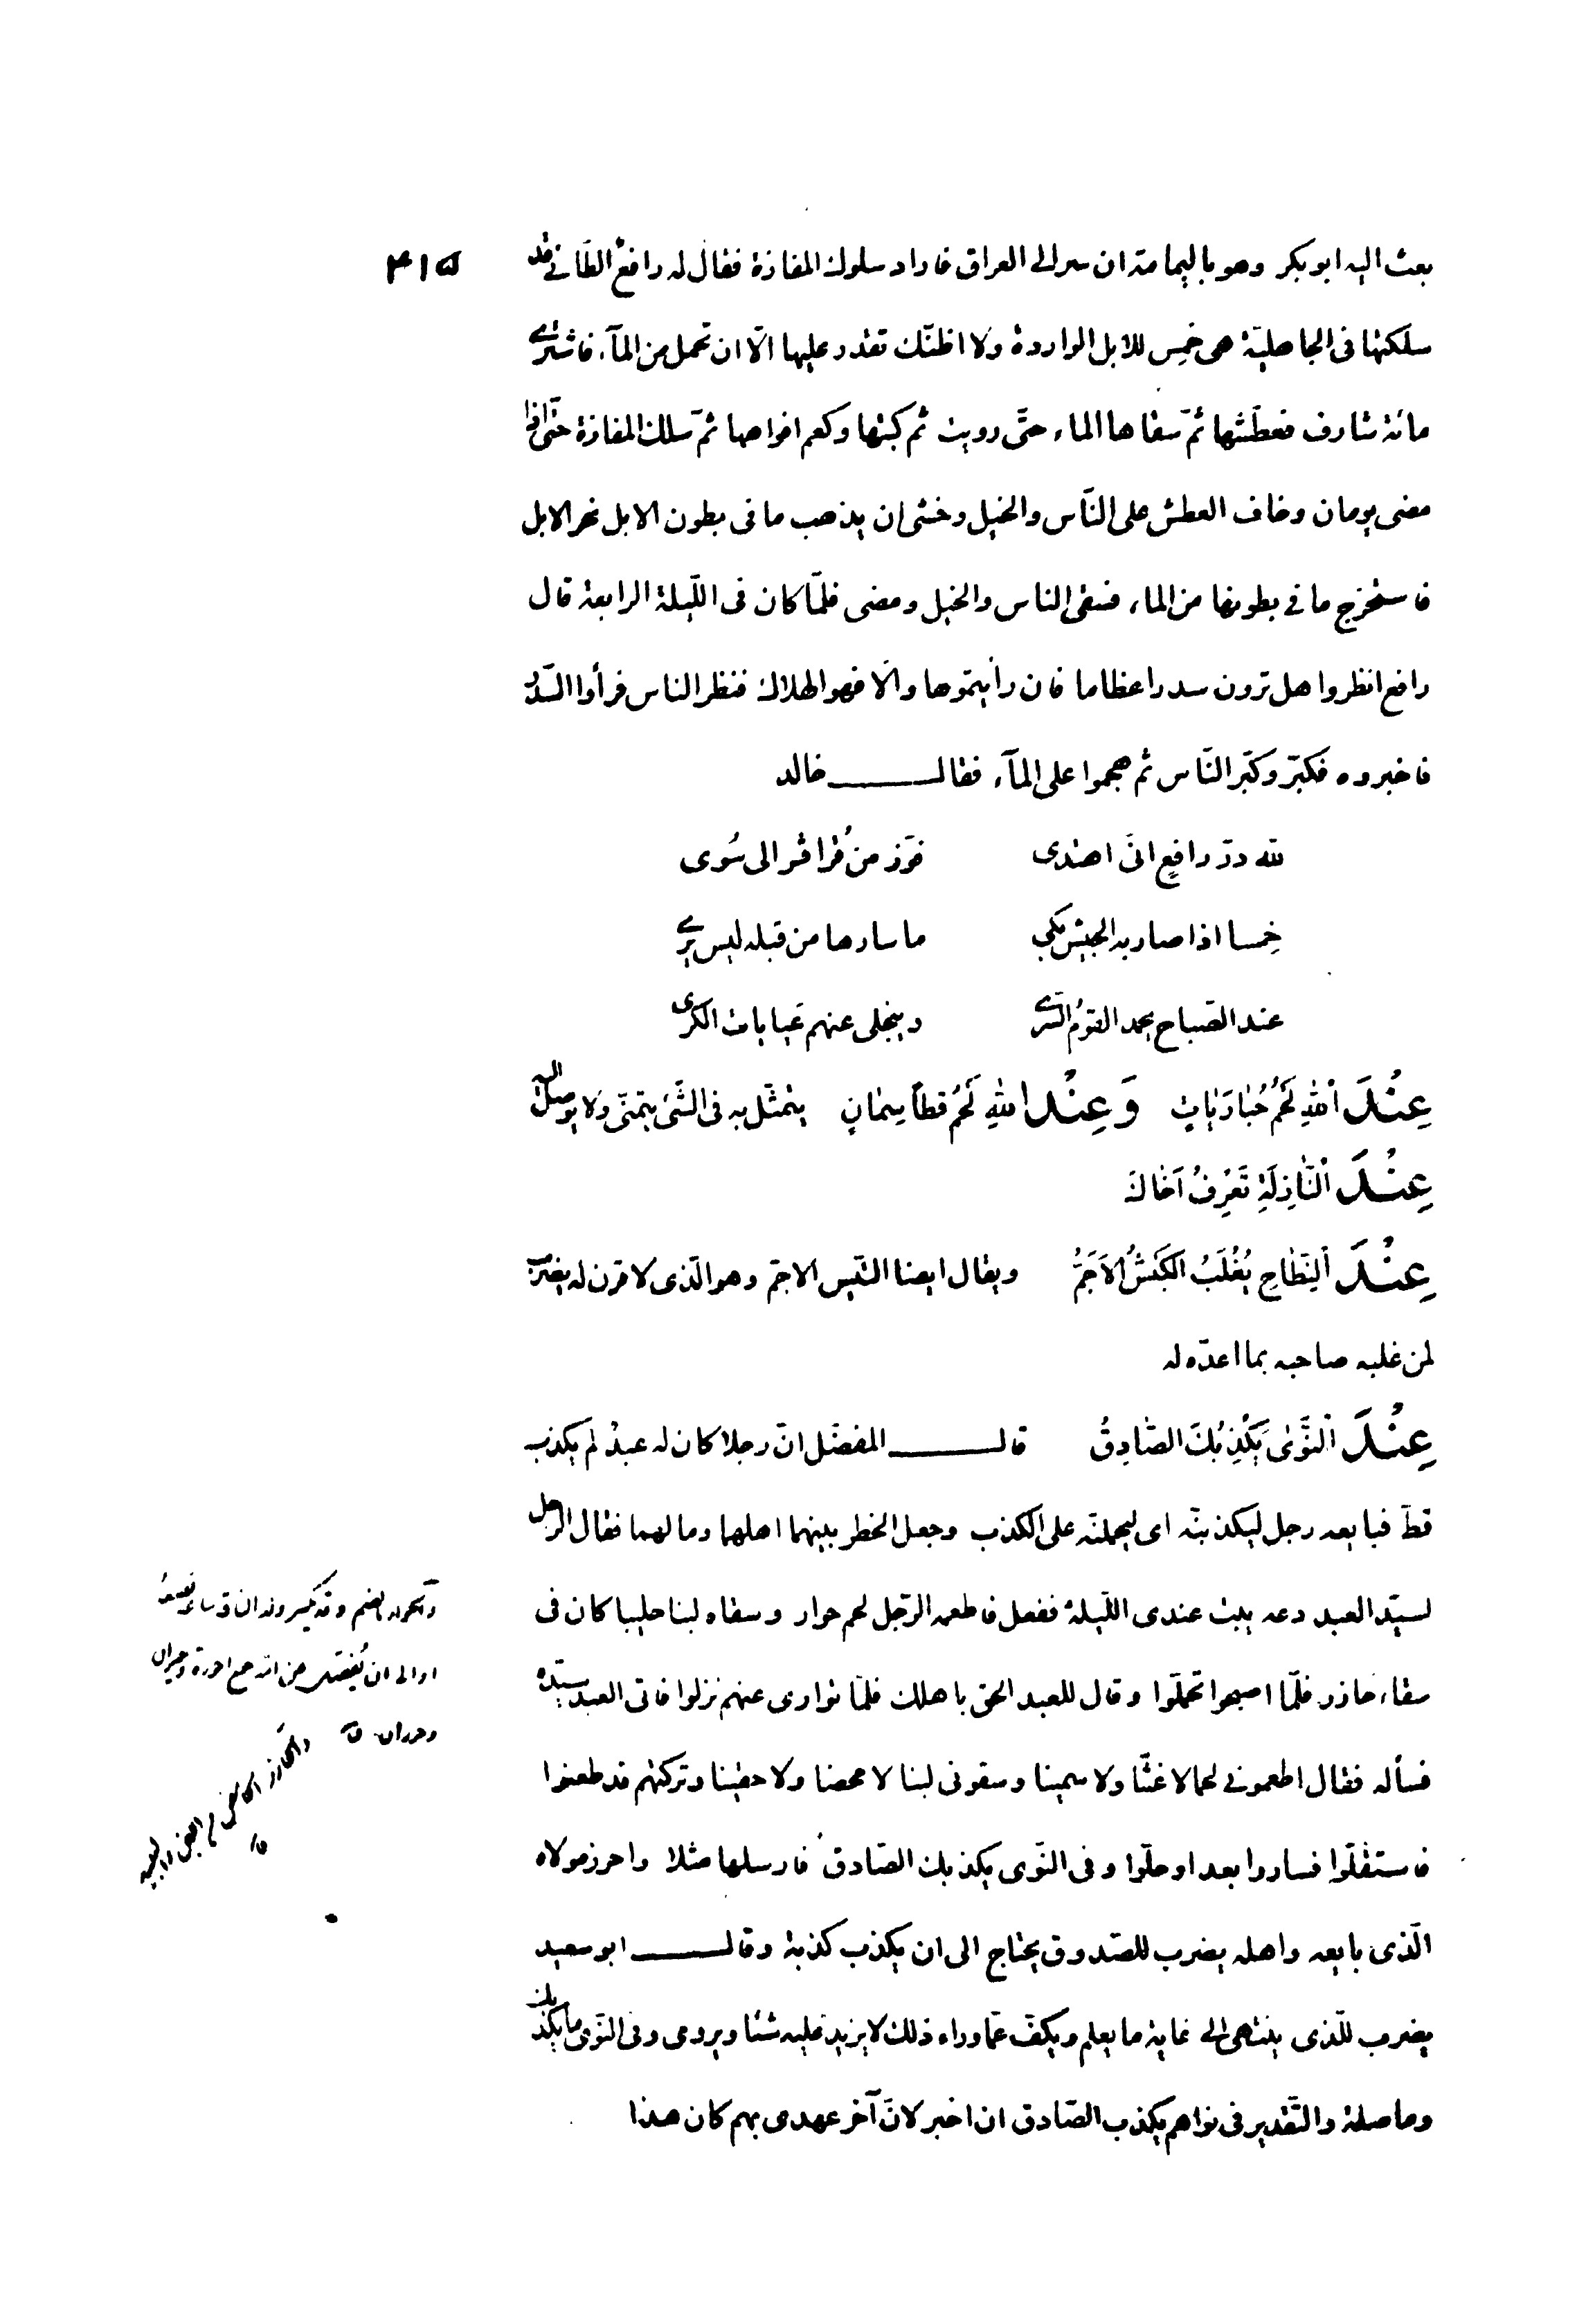 ۴۱۵
بعث اليه ابو بكر وهو باليمامة ان سر الى العراق فاراد سلوك المفازة فقال له رافع الطّائى قد
سلكتها فى الجاهليّة هى خِمس للابل الواردة ولا اظنّك تقدر عليها الّا ان تحمل من المآء فاشترى
مائة شارف فعطّشها ثمّ سقاها الماء حتّى رويت ثم كبتها وكعم افواهها ثمّ سلك المفازة حتّى اذا
مضى يومان وخاف العطش على النّاس والخيل وخشى ان يذهب ما فى بطون الابل نحر الابل
فاستخرج ما فى بطونها من الماء فسقى الناس والخيل ومضى فلمّا كان فى اللّيلة الرابعة قال
رافع انظروا هل ترون سدرا عظاما فان رأيتموها والّا فهو الهلاك فنظر الناس فرأوا السّدر
فاخبروه فكبّر وكبّر النّاس ثم هجموا على المآء فقال خالد
لله درّ رافعٍ انّى اهتدى فوّز من قُراقر الى سُوى
خِمسا اذا سار به الجيش بكى ما سارها من قبله ليس يرى
عند الصّباح يحمد القومُ السّرى وينجلى عنهم غيابات الكرى
عِنْدَ اللّٰهِ لَحْمُ حُبَارَيَاتٍ وَعِنْدَ اللّٰهِ لَحْمُ قطاً سِمَانٍ يتمثّل به فى الشّئ يتمنّى ولا يوصل اليه
عِنْدَ النَّازِلَةِ تَعْرِفُ اَخَاكَ
عِنْدَ النِّطَاحِ يُغْلَبُ الكَبْشُ الاَجَمُّ ويقال ايضا التّيس الاجمّ وهو الّذى لا قرن له يضرب
لمن غلبه صاحبه بما اعدّه له
عِنْدَ النَّوَىٰ يَكْذِبُكَ الصَّادِقُ قال المفضّل انّ رجلا كان له عبدٌ لم يكذب
قطّ فبايعه رجل ليكذبنّه اى ليحملنّه على الكذب وجعل الخطر بينهما اهلهما ومالهما فقال الرجل
لسيّد العبد دعه يبيت عندى اللّيلة ففعل فاطعمه الرّجل لحم حوار وسقاه لبنا حليبا كان فى
سقاء حاذر فلمّا اصبحوا تحمّلوا وقال للعبد الحق باهلك فلمّا توارى عنهم نزلوا فاتى العبد سيّده
فسأله فقال اطعمونى لحما لا غثّا ولا سمينا وسقونى لبنا لا محضا ولا حقينا وتركتهم قد ظعنوا
فاستقلّوا فساروا بعد او حلّوا وفى النّوى يكذبك الصّادق فارسلها مثلا واحرز مولاه
الّذى بايعه واهله يضرب للصّدوق يحتاج الى ان يكذب كذبة وقال ابو سعيد
يضرب للّذى ينتهى الى غاية ما يعلم ويكفّ عمّا وراء ذلك لا يزيد عليه شئا ويروى وفى النّوى ما يكذبك
وما صلة والتّقدير فى نواهم يكذب الصّادق ان اخبر لانّ آخر عهدى بهم كان هذا